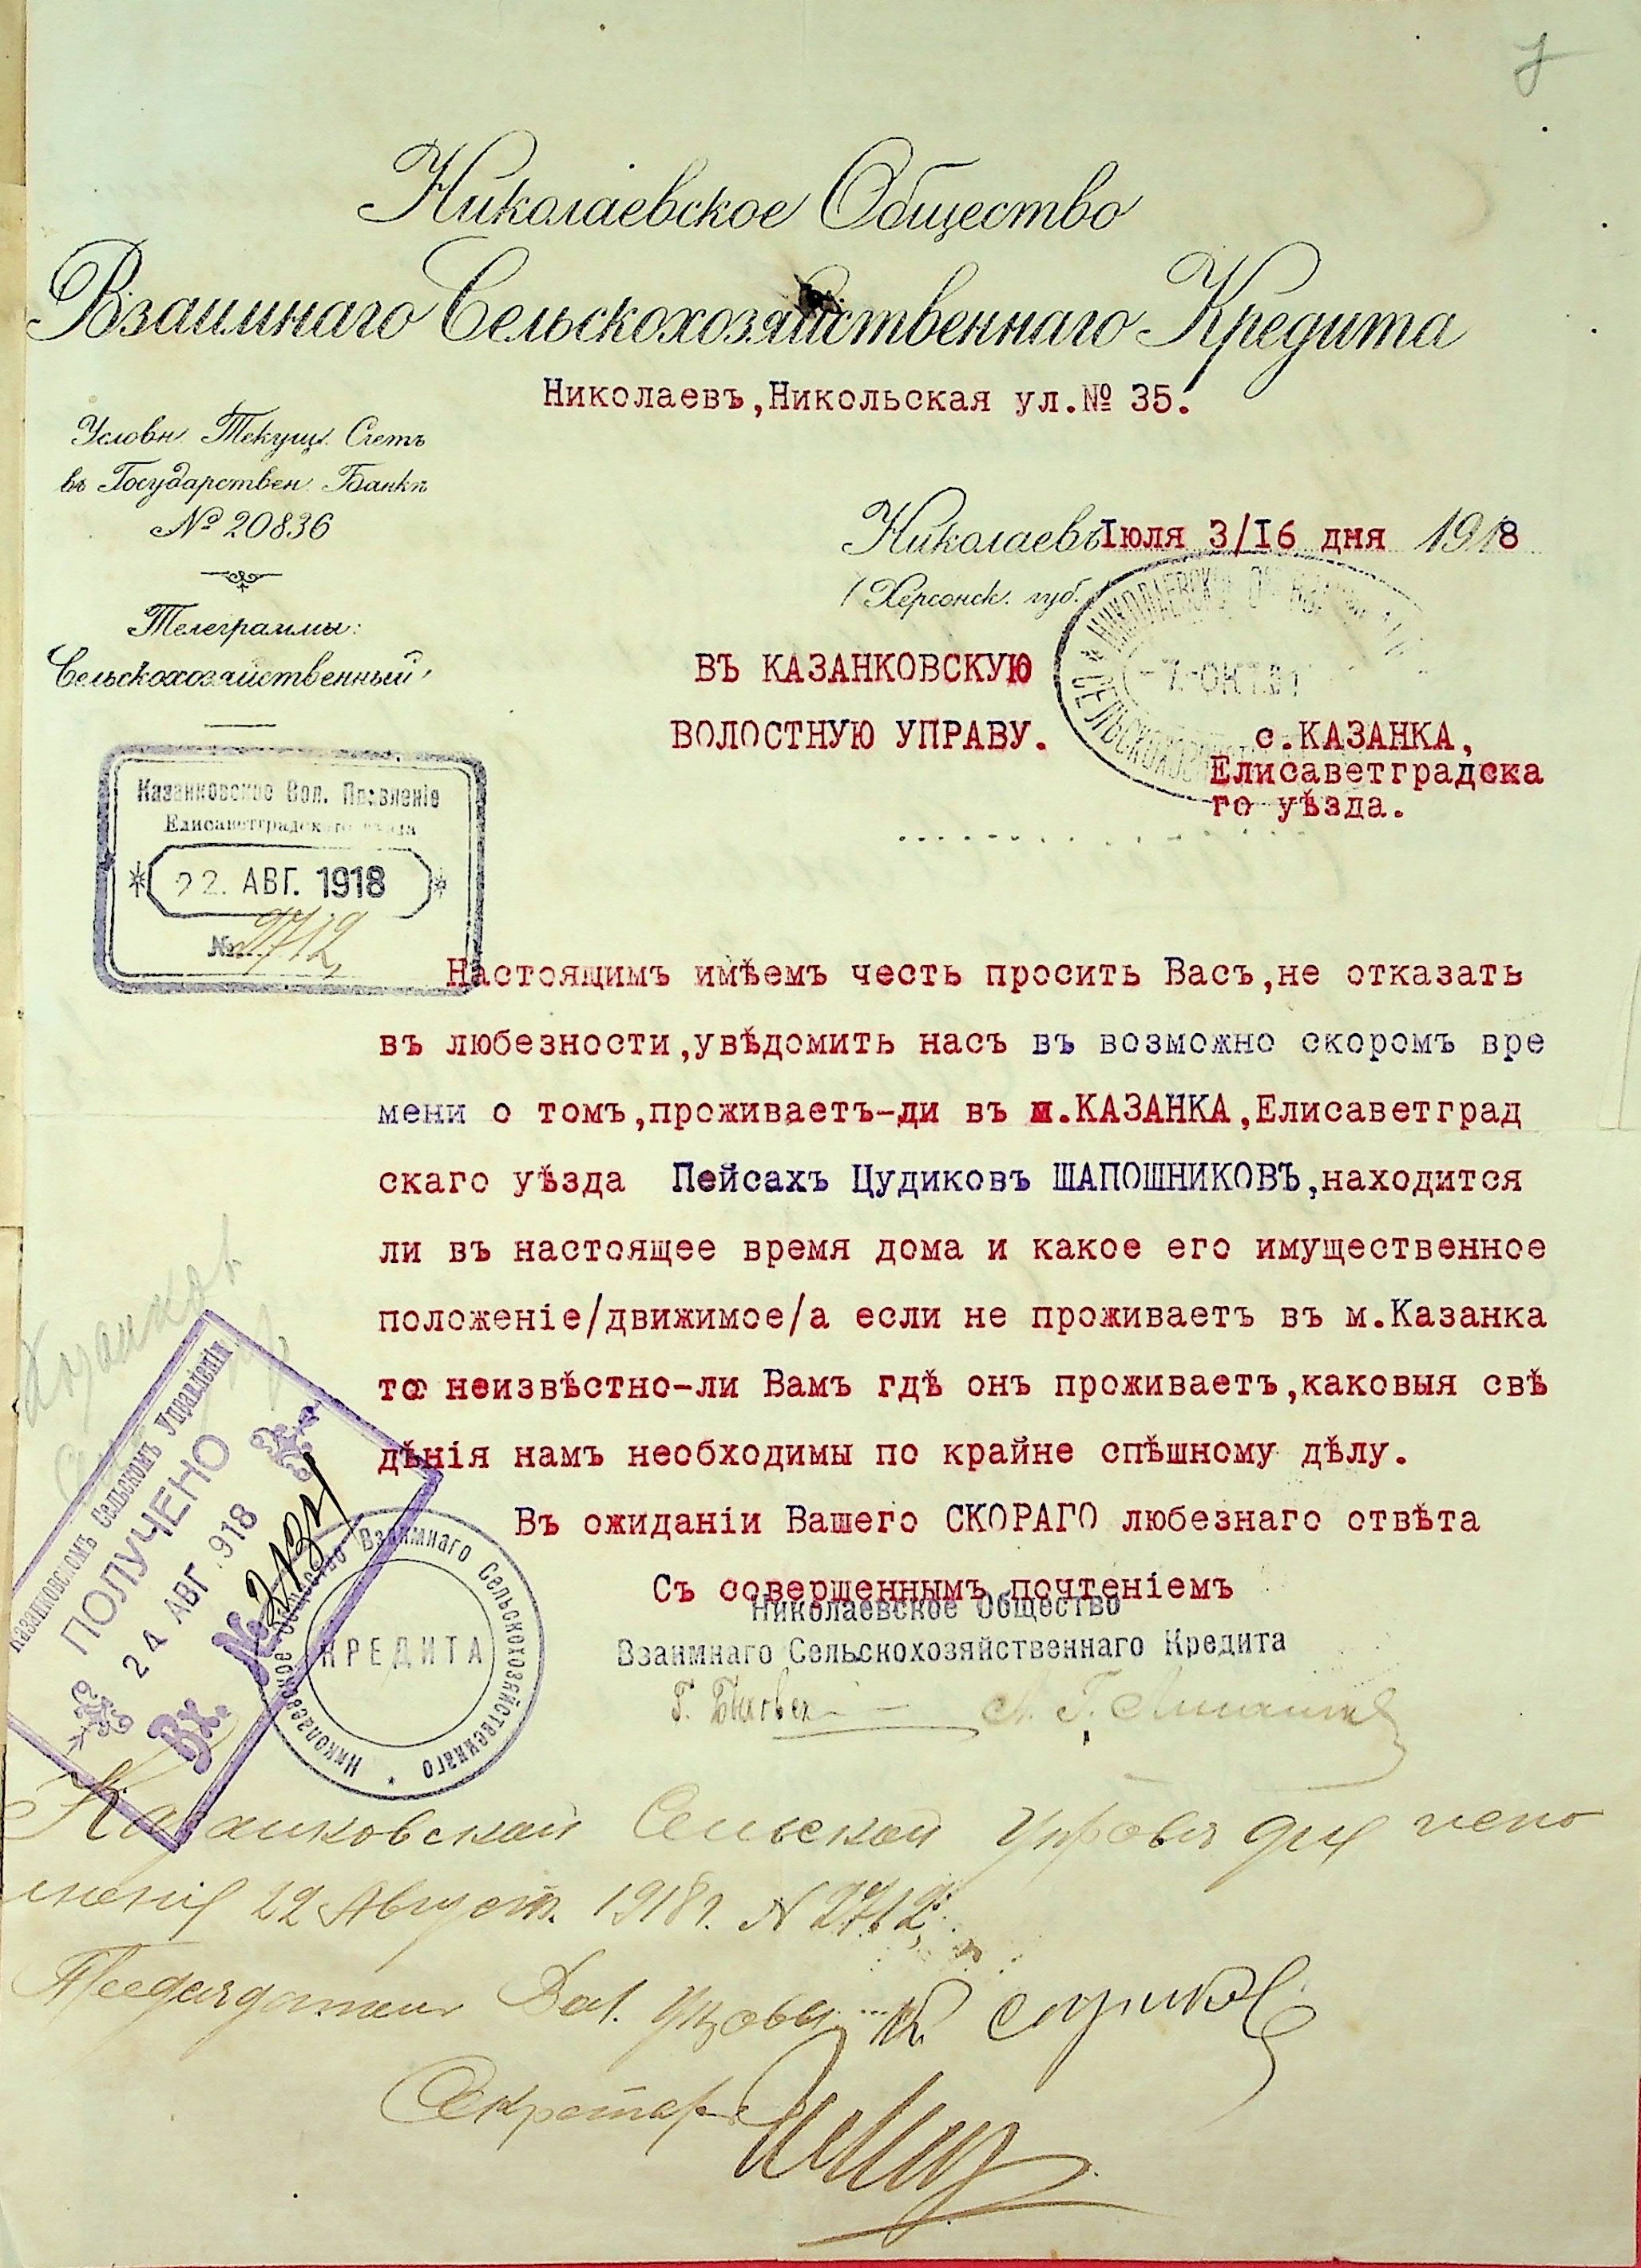 Николаевское Общество
Взаимнаго Сельскохозяйственнаго Кредита
Николаевъ,Никольская ул.№ 35.
Условн. Текущ. Счетъ
въ Государствен. Банкѣ
№ 20836
Телеграммы:
Сельскохозяйственный
Николаевъ Іюля 3/I6 дня 1918
/Херсонск. губ.
НИКОЛАЕВСК
СЕЛЬСКОХОЗ
-7.-ОКТ.
ВЪ КАЗАНКОВСКУЮ
ВОЛОСТНУЮ УПРАВУ.
с.КАЗАНКА,
Елисаветградска
го уѣзда.
Казанковское Вол. Правленіе
Елисаветградскаго уѣзда
22. АВГ. 1918
№ 2712
Настоящимъ имѣемъ честь просить Васъ,не отказать
въ любезности,увѣдомить насъ въ возможно скоромъ вре
мени о томъ,проживаетъ-ли въ м.КАЗАНКА,Елисаветград
скаго уѣзда Пейсахъ Цудиковъ ШАПОШНИКОВЪ,находится
ли въ настоящее время дома и какое его имущественное
положеніе/движимое/а если не проживаетъ въ м.Казанка
то неизвѣстно-ли Вамъ гдѣ онъ проживаетъ,каковыя свѣ
дѣнія намъ необходимы по крайне спѣшному дѣлу.
Въ ожиданіи Вашего СКОРАГО любезнаго отвѣта
Съ совершеннымъ почтеніемъ
Николаевское Общество
Взаимнаго Сельскохозяйственнаго Кредита
Казанковскомъ Сельскомъ Управленіи
ПОЛУЧЕНО
24 АВГ 918
Вх. №
Николаевское Общество Взаимнаго Сельскохозяйственнаго
КРЕДИТА
Казанковской Сельской Управѣ для испо
лненія 22 Август. 1918 г. N 2712
Председатель Вол. Управы
Секретарь